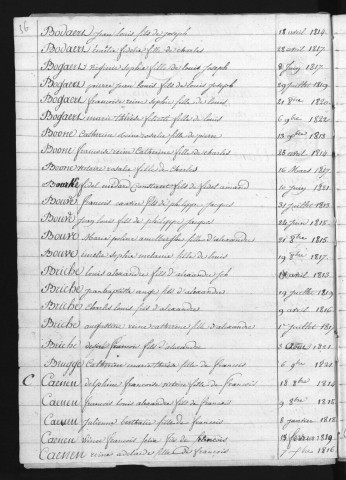 16
Bodaert jean louis fils de joseph 18 avril 1814.
Bodaert emélie fidelia fille de charles 28 avril 1817.
Bogaert sophie fille de louis joseph 8 juin 1817.
Bogaert pierre jean louis fils de louis joseph 29 juillet 1819
Bogaert françoise reine sophie fille de louis 21 8bre 1820
Bogaert marie thérèse fille de louis 6 9bre 1822
Boone catherine rosalie fille de pierre 13 9bre 1813
Boone françoise reine catherine fille de charles 25 avril 1814.
Boone victoire rosalie fille de charles 16 Mars 1817.
fidel médard constant fils de fidel amand 10 juin 1821.
Bouve francois xavier fils de philippe jacques 31 juillet 1813
Bouve jean louis fils de philippe jacques 24 juin 1815.
Bouve marie fille d'alexandre 21 8bre 1815.
Bouve amelie sophie melanie fille de louis 19 8bre 1817.
Briche louis alexandre fils d'alexandre jph avril 1813.
Briche jeanbaptiste auge fils d'alexandre 19 juillet 1814
Briche charles louis fils d'alexandre 9 avril 1816.
Briche augustine reine catherine fille d'alexandre 17 juillet 1819
Briche désiré francois fils d'alexandre 8 1821.
Brugge catherine marie thérèse fille de francois 6 9bre 1821.
C Caenen delphine françoise victoire fille de francois 18 8bre 1814
Caenen francois louis alexandre fils de francois 9 8bre 1815.
Caenen julienne bertholie fille de francois 8 janvier 1818
Caenen victor francois felix fils de francois 15 fevrier 1819
Caenen reine adelaide fille de francois 7 9bre 1816.